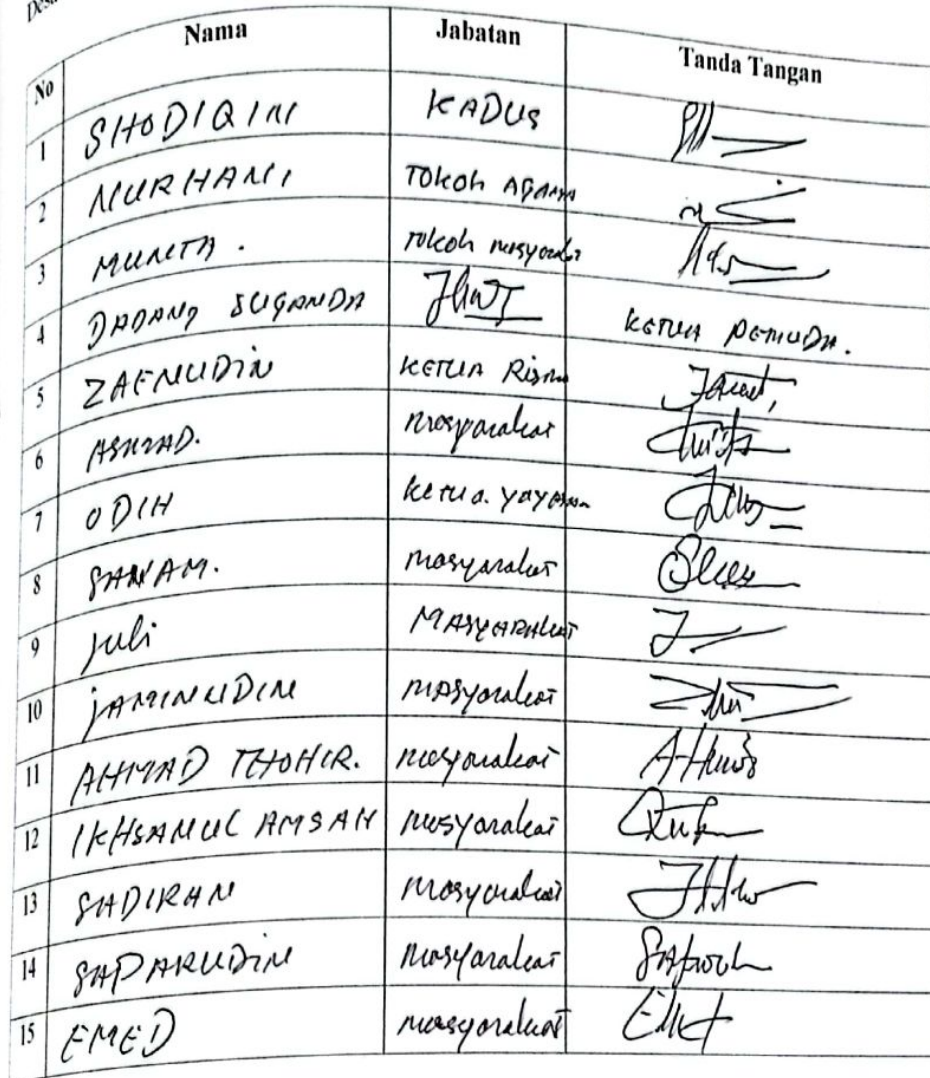 Nama Jabatan Tanda Tangan
No
1 SHODIQIN KADUS
2 NURHANI TOKOH AGAMA
3 MUNTA. Tokoh masyarakat
4 DADANG SUGANDA KETUA PEMUDA.
5 ZAENUDIN KETUA RISMA
6 AHMAD. masyarakat
7 ODIH Ketua. yayasan
8 masyarakat
9 Juli MASYARAKAT
10 JAMINUDIN masyarakat
11 AHMAD THOHIR. masyarakat
12 IKHSANUL AMSAH masyarakat
13 SADIRAN masyarakat
14 SAPARUDIN masyarakat
15 EMED masyarakat